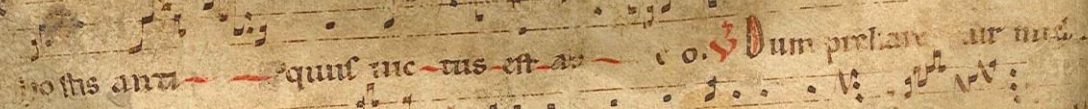 hostis anti quus uic tus est ab e o. ℣ Dum preliare tur mich